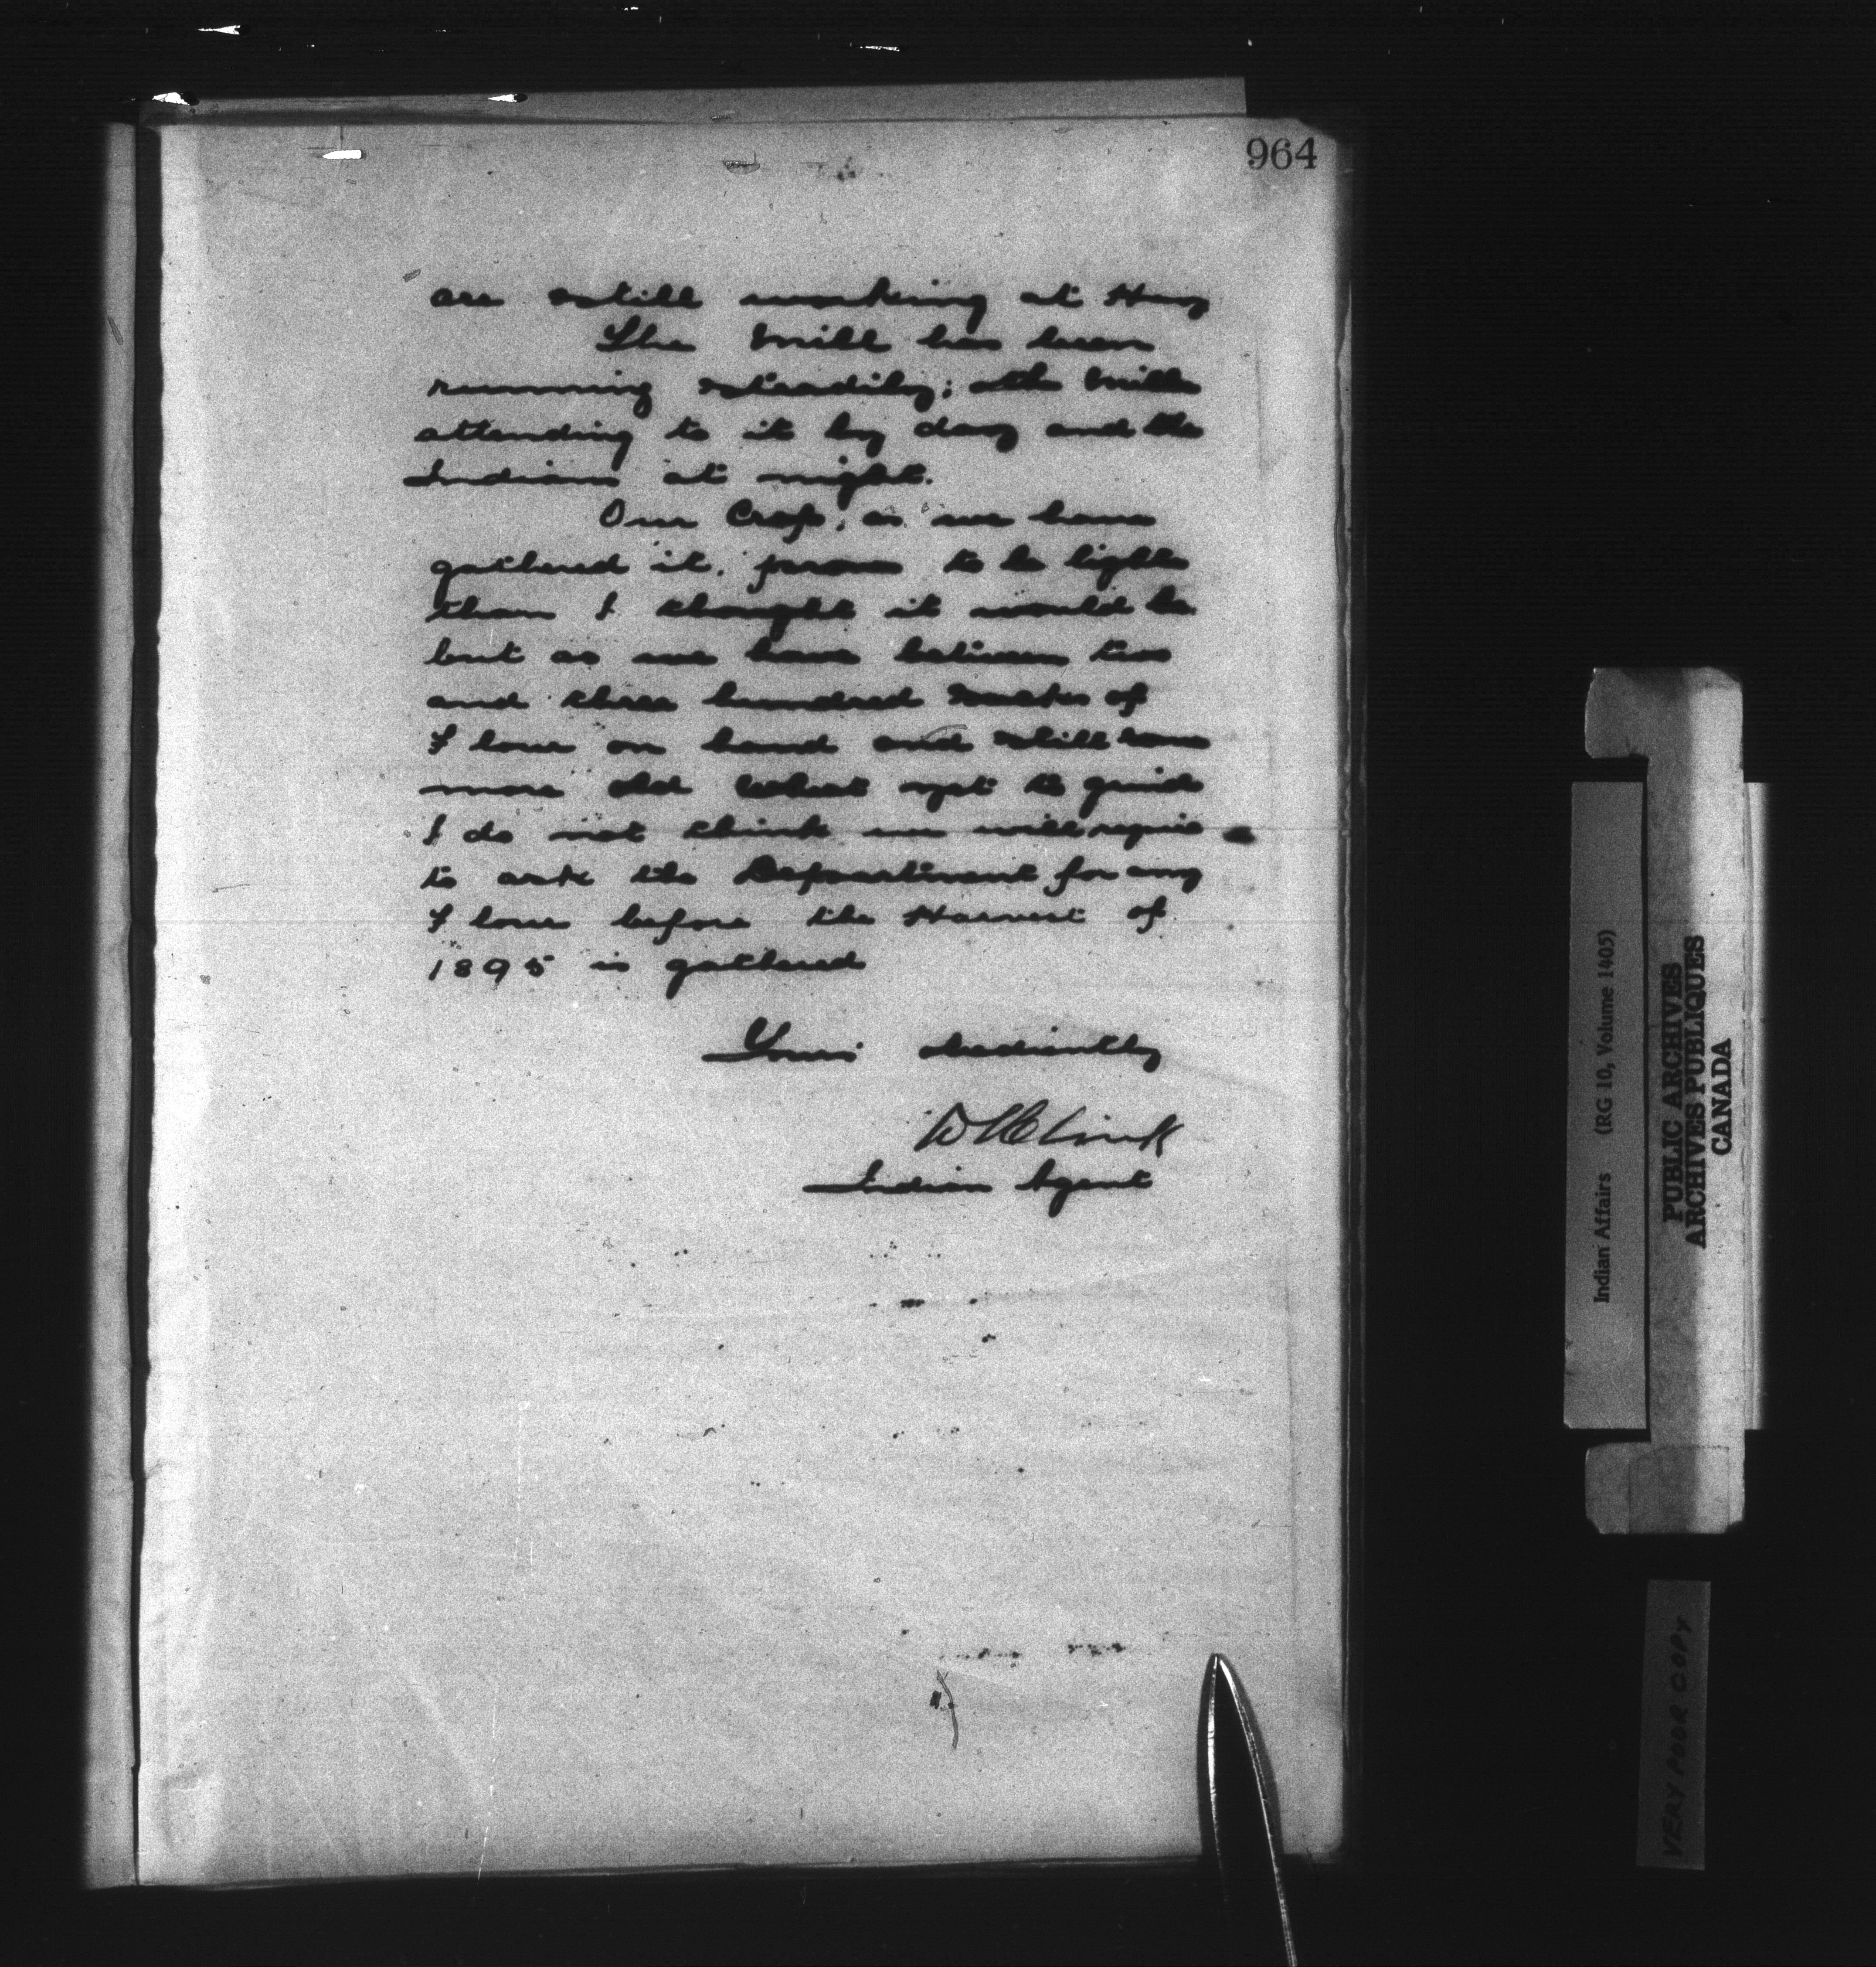 964
are still working at Hay
The Mill has been
running steadily; the Miller
attending to it by day and the
Indians at night.
Our Crop, as we have
gathered it, proves to be lighter
than I thought it would be
but as we have between two
and three hundred sacks of
Flour on hand and still have
more old wheat yet to grind
I do not think we will require
to ask the Department for any
Flour before the Harvest of
1895 is gathered
Yours obediently
Indian Agent
Indian Affairs (RG 10, Volume 1405)
PUBLIC ARCHIVES
ARCHIVES PUBLIQUES
CANADA
VERY POOR COPY